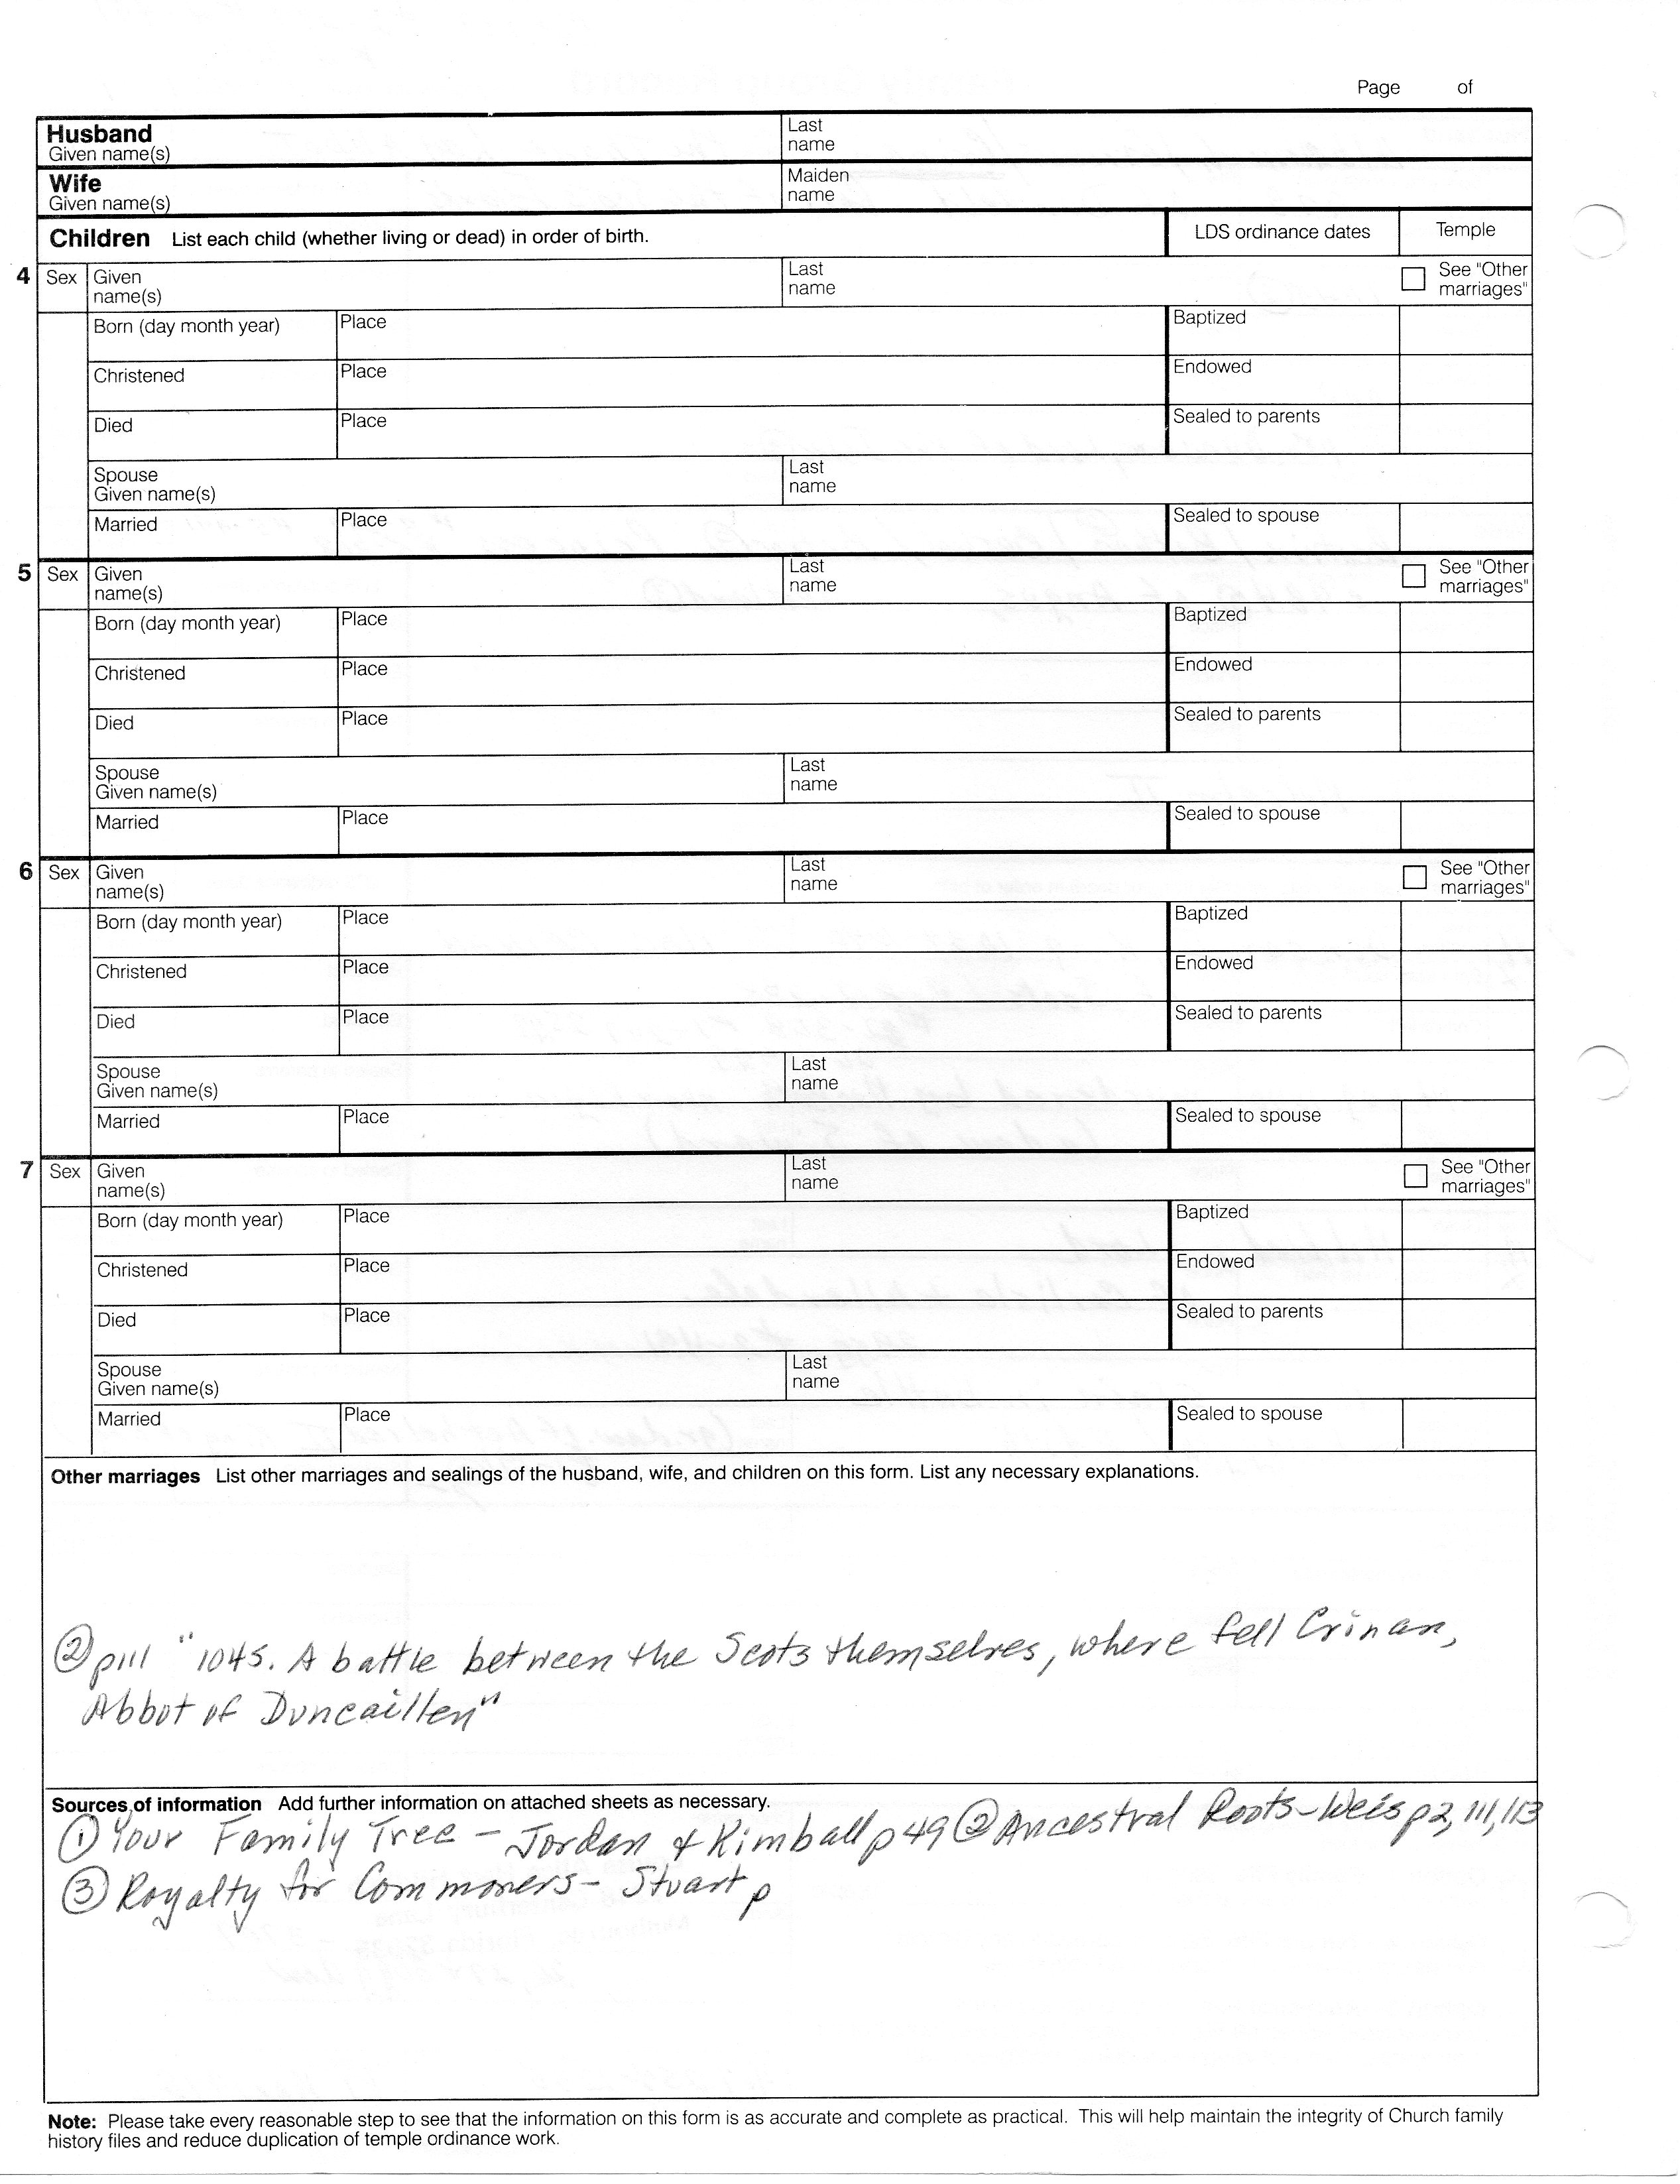 Page of
Husband
Given name(s)
Last
name
Wife
Given name(s)
Maiden
name
Children List each child (whether living or dead) in order of birth.
LDS ordinance dates
Temple
4 Sex Given
name(s)
Last
name
See "Other
marriages"
Born (day month year) Place Baptized
Christened Place Endowed
Died Place Sealed to parents
Spouse
Given name(s)
Last
name
Married Place Sealed to spouse
5 Sex Given
name(s)
Last
name
See "Other
marriages"
Born (day month year) Place Baptized
Christened Place Endowed
Died Place Sealed to parents
Spouse
Given name(s)
Last
name
Married Place Sealed to spouse
6 Sex Given
name(s)
Last
name
See "Other
marriages"
Born (day month year) Place Baptized
Christened Place Endowed
Died Place Sealed to parents
Spouse
Given name(s)
Last
name
Married Place Sealed to spouse
7 Sex Given
name(s)
Last
name
See "Other
marriages"
Born (day month year) Place Baptized
Christened Place Endowed
Died Place Sealed to parents
Spouse
Given name(s)
Last
name
Married Place Sealed to spouse
Other marriages List other marriages and sealings of the husband, wife, and children on this form. List any necessary explanations.
② p111 "1045. A battle between the Scots themselves, where fell Crinan,
Abbot of Duncaillen"
Sources of information Add further information on attached sheets as necessary.
① Your Family Tree - Jordan & Kimball p 49 ② Ancestral Roots-Weis p2, 111, 113
③ Royalty for Commoners - Stuart p
Note: Please take every reasonable step to see that the information on this form is as accurate and complete as practical. This will help maintain the integrity of Church family
history files and reduce duplication of temple ordinance work.